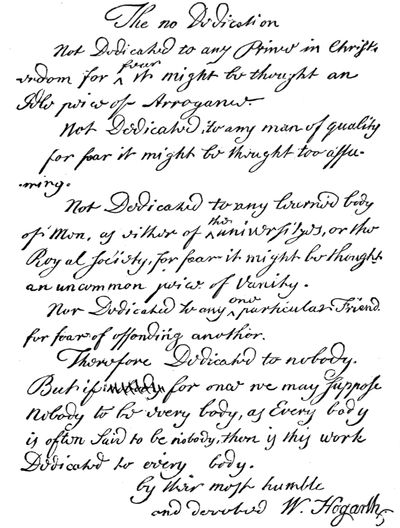 The no Dedication
Not Dedicated to any Prince in Christ-
endom for fear it might be thought an
Idle peice of Arrogance.
Not Dedicated to any man of quality
for fear it might be thought too assu-
ming.
Not Dedicated to any learned body
of Men, as either of the universityes, or the
Royal Society, for fear it might be thought
an uncommon peice of Vanity.
Nor Dedicated to any one particular Friend
for fear of offending another.
Therefore Dedicated to nobody.
But if for once we may suppose
Nobody to be every body, as Every body
is often said to be nobody, then is this work
Dedicated to every body.
by their most humble
and devoted W. Hogarth